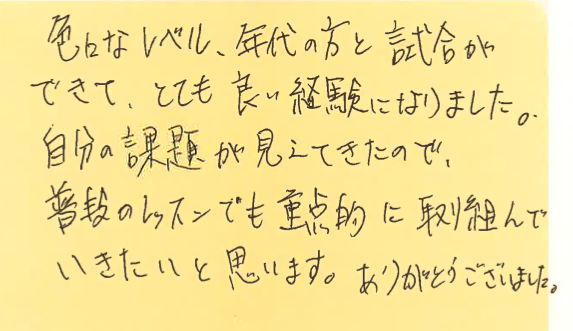 色々なレベル、年代の方と試合が
できて、とても良い経験になりました。
自分の課題が見えてきたので、
普段のレッスンでも重点的に取り組んで
いきたいと思います。ありがとうございました。